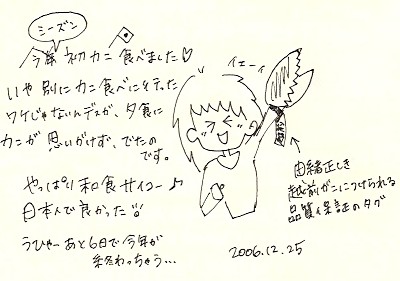 シーズン
今年初カニ食べました♡
いや別にカニ食べに行った
ワケじゃないんデスが、夕食に
カニが思いがけず、でたの
です。
やっぱり和食サイコー♪
日本人で良かった!!
うひゃーあと6日で今年が
終わっちゃう…
イエーイ
由緒正しき
越前がににつけられる
品質保証のタグ
2006.12.25